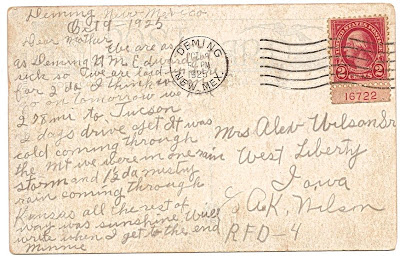 Deming New Mexico
Oct 9 - 1925
Dear Mother
We are as far
as Deming N M Edward
sick so we are laid up
for 2 da I think we
go on tomorrow we
2 75 mi to Tucson
2 days drive yet It was
cold coming through
the Mt we were in one rain
storm and 1/2 da misty
rain coming through
Kansas all the rest of
way was sunshine Will
write when I get to the end
Minnie
DEMING
OCT 9
PM
1925
NEW MEX.
UNITED STATES POSTAGE
2 CENTS 2
16722
Mrs Alex Wilson Sr
West Liberty
Iowa
c/o A.K. Wilson
RFD-4